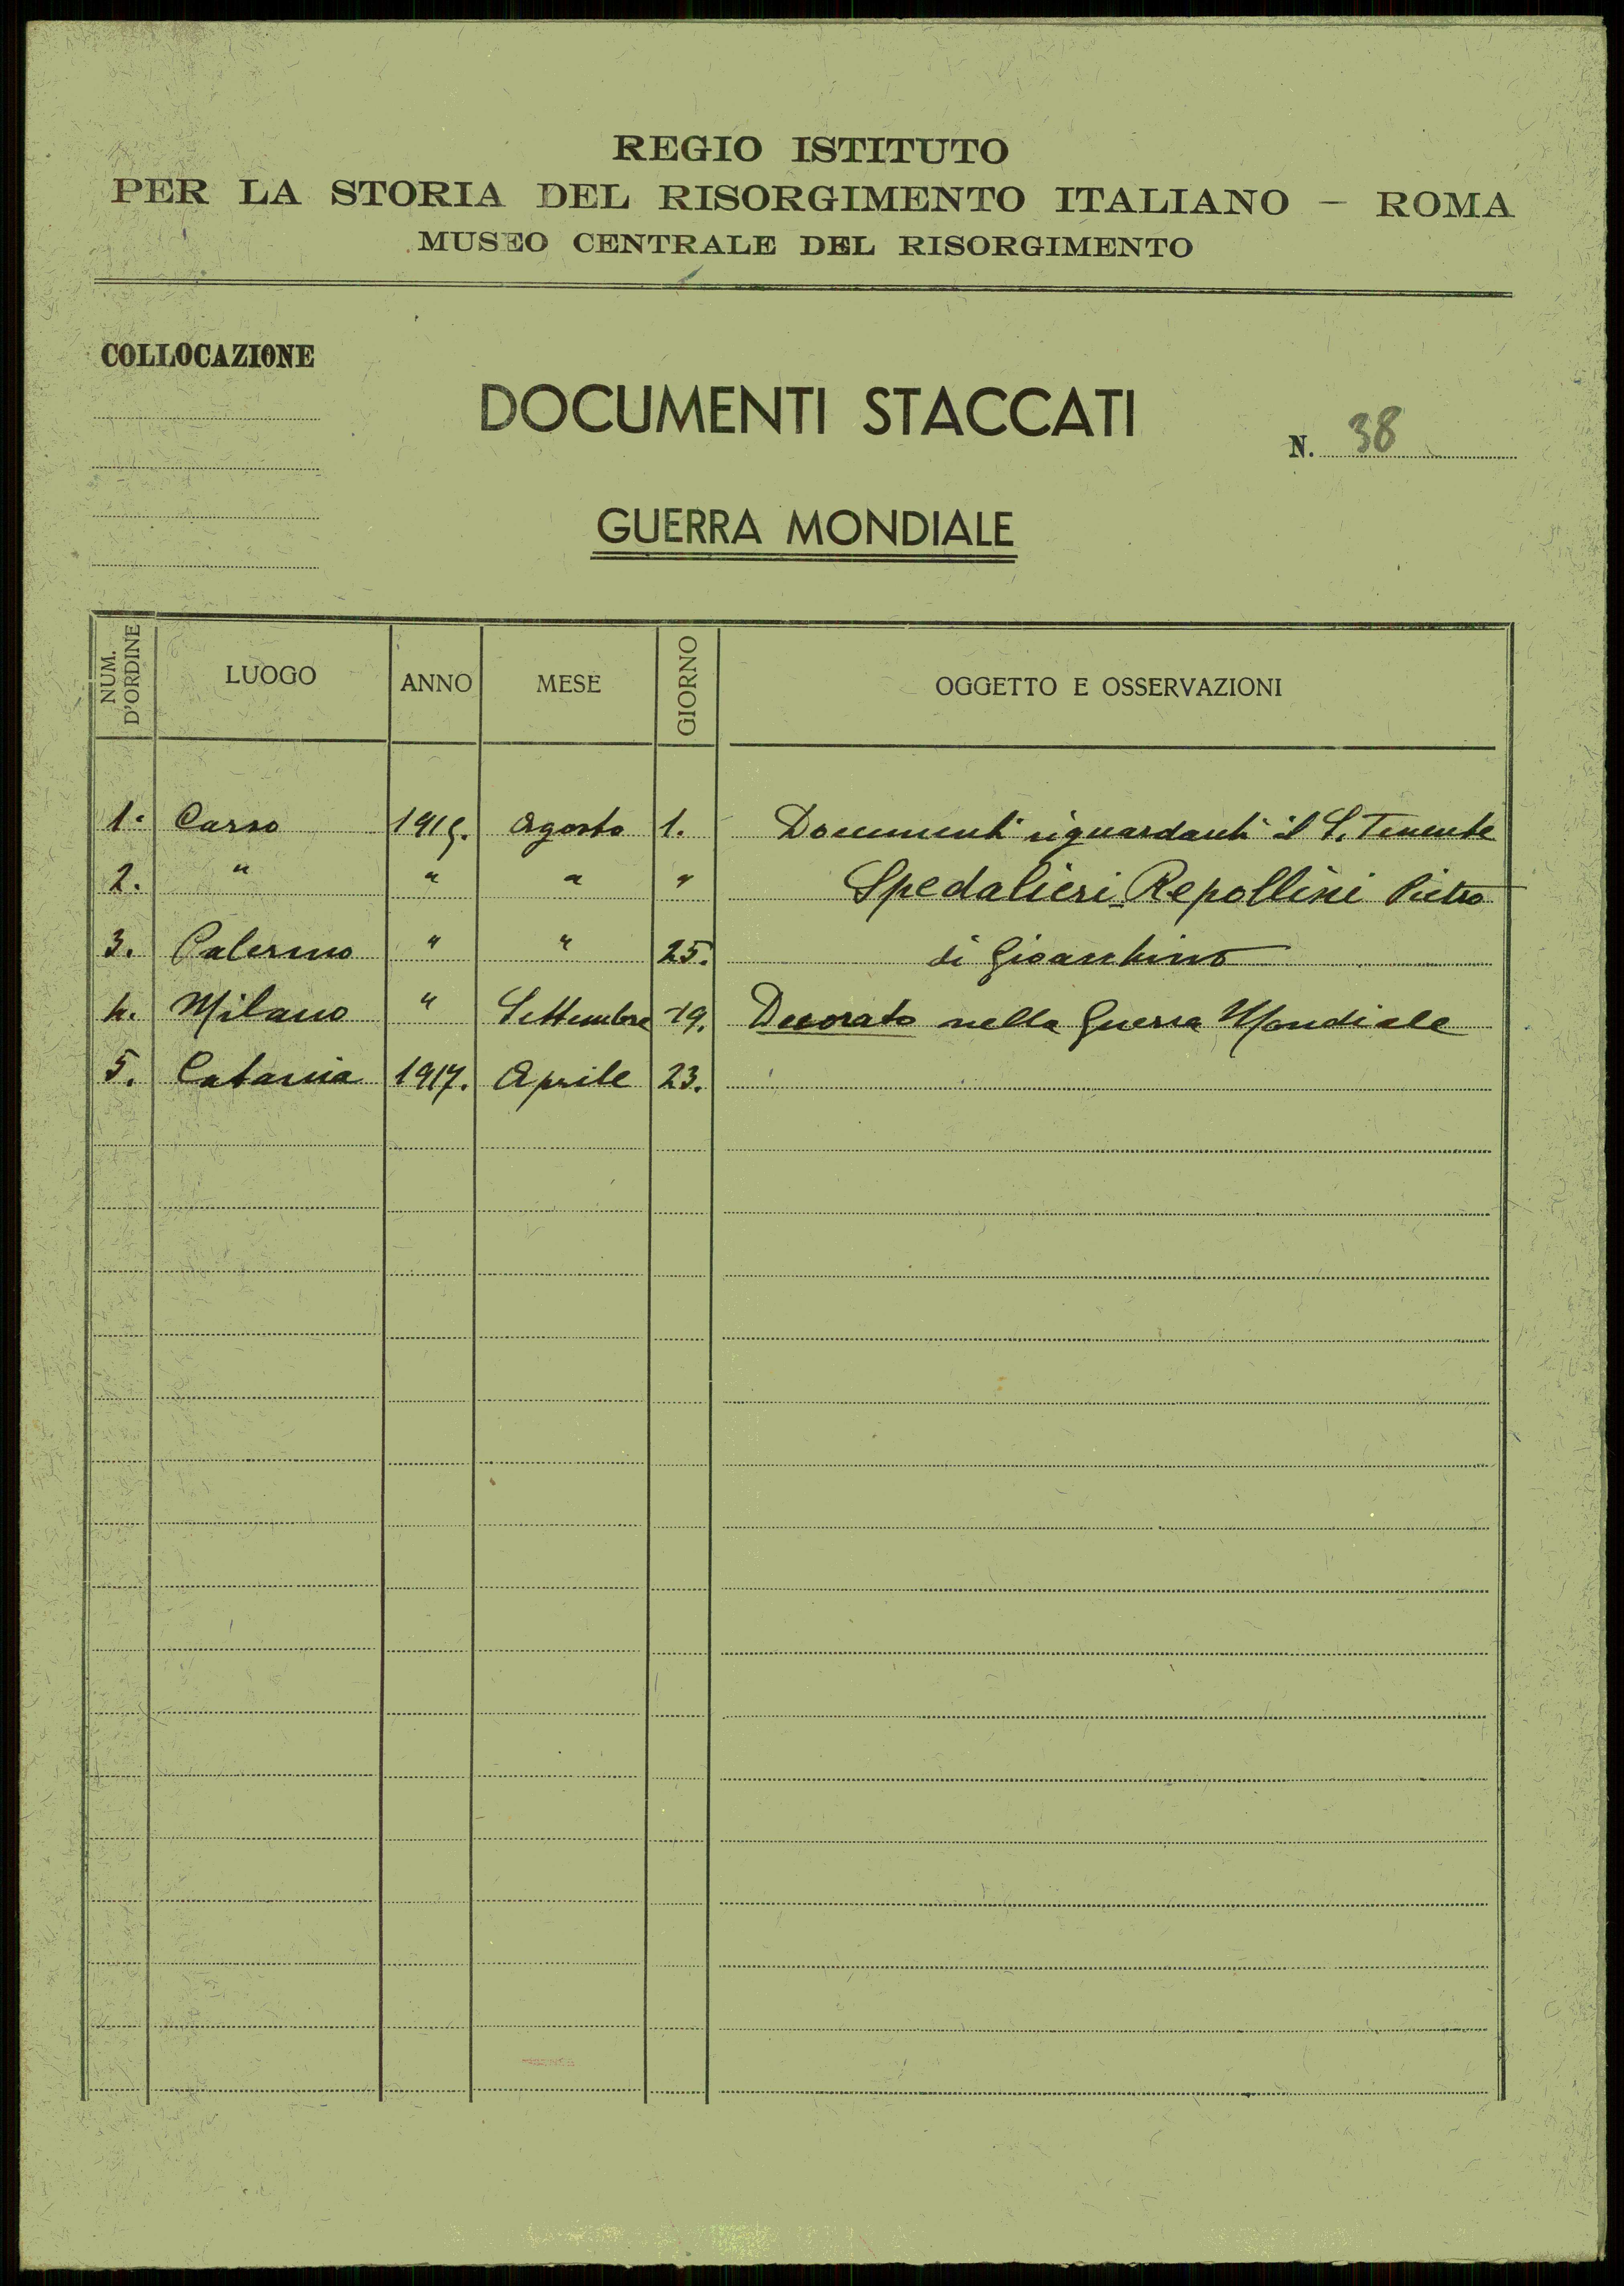 REGIO ISTITUTO
PER LA STORIA DEL RISORGIMENTO ITALIANO – ROMA
MUSEO CENTRALE DEL RISORGIMENTO
COLLOCAZIONE
DOCUMENTI STACCATI
N. 38
GUERRA MONDIALE
NUM. D'ORDINE LUOGO ANNO MESE GIORNO OGGETTO E OSSERVAZIONI
1. Carso 1915. Agosto 1. Documenti riguardanti il S. Tenente
2. " " " " Spedalieri-Repollini Pietro
3. Palermo " " 25. di Gioacchino
4. Milano " Settembre 19. Decorato nella Guerra Mondiale
5. Catania 1917. Aprile 23.